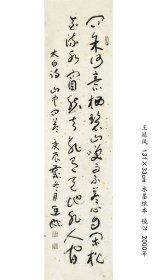 问余何意栖碧山笑而不答心自闲桃
花流水窅然去别有天地非人间
太白诗山中问答 庚辰
王延风 131×33cm 水墨纸本 镜心 2000年